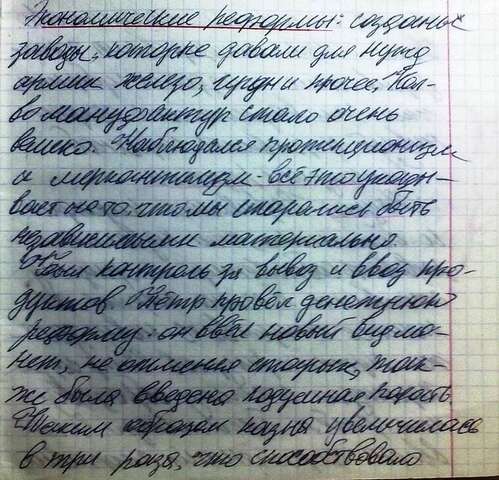 Экономические реформы: созданы
заводы, которые давали для нужд
армии железо, орудия и прочее. Кол-
во мануфактур стало очень
велико. Наблюдался протекционизм
и меркантилизм - всё это указы-
вает на то, что мы старались быть
независимыми материально.
Был контроль за вывоз и ввоз про-
дуктов. Пётр провёл денежную
реформу - он ввёл новый вид мо-
нет, не отменяя старых, так-
же была введена подушная подать.
Таким образом казна увеличилась
в три раза, что способствовало